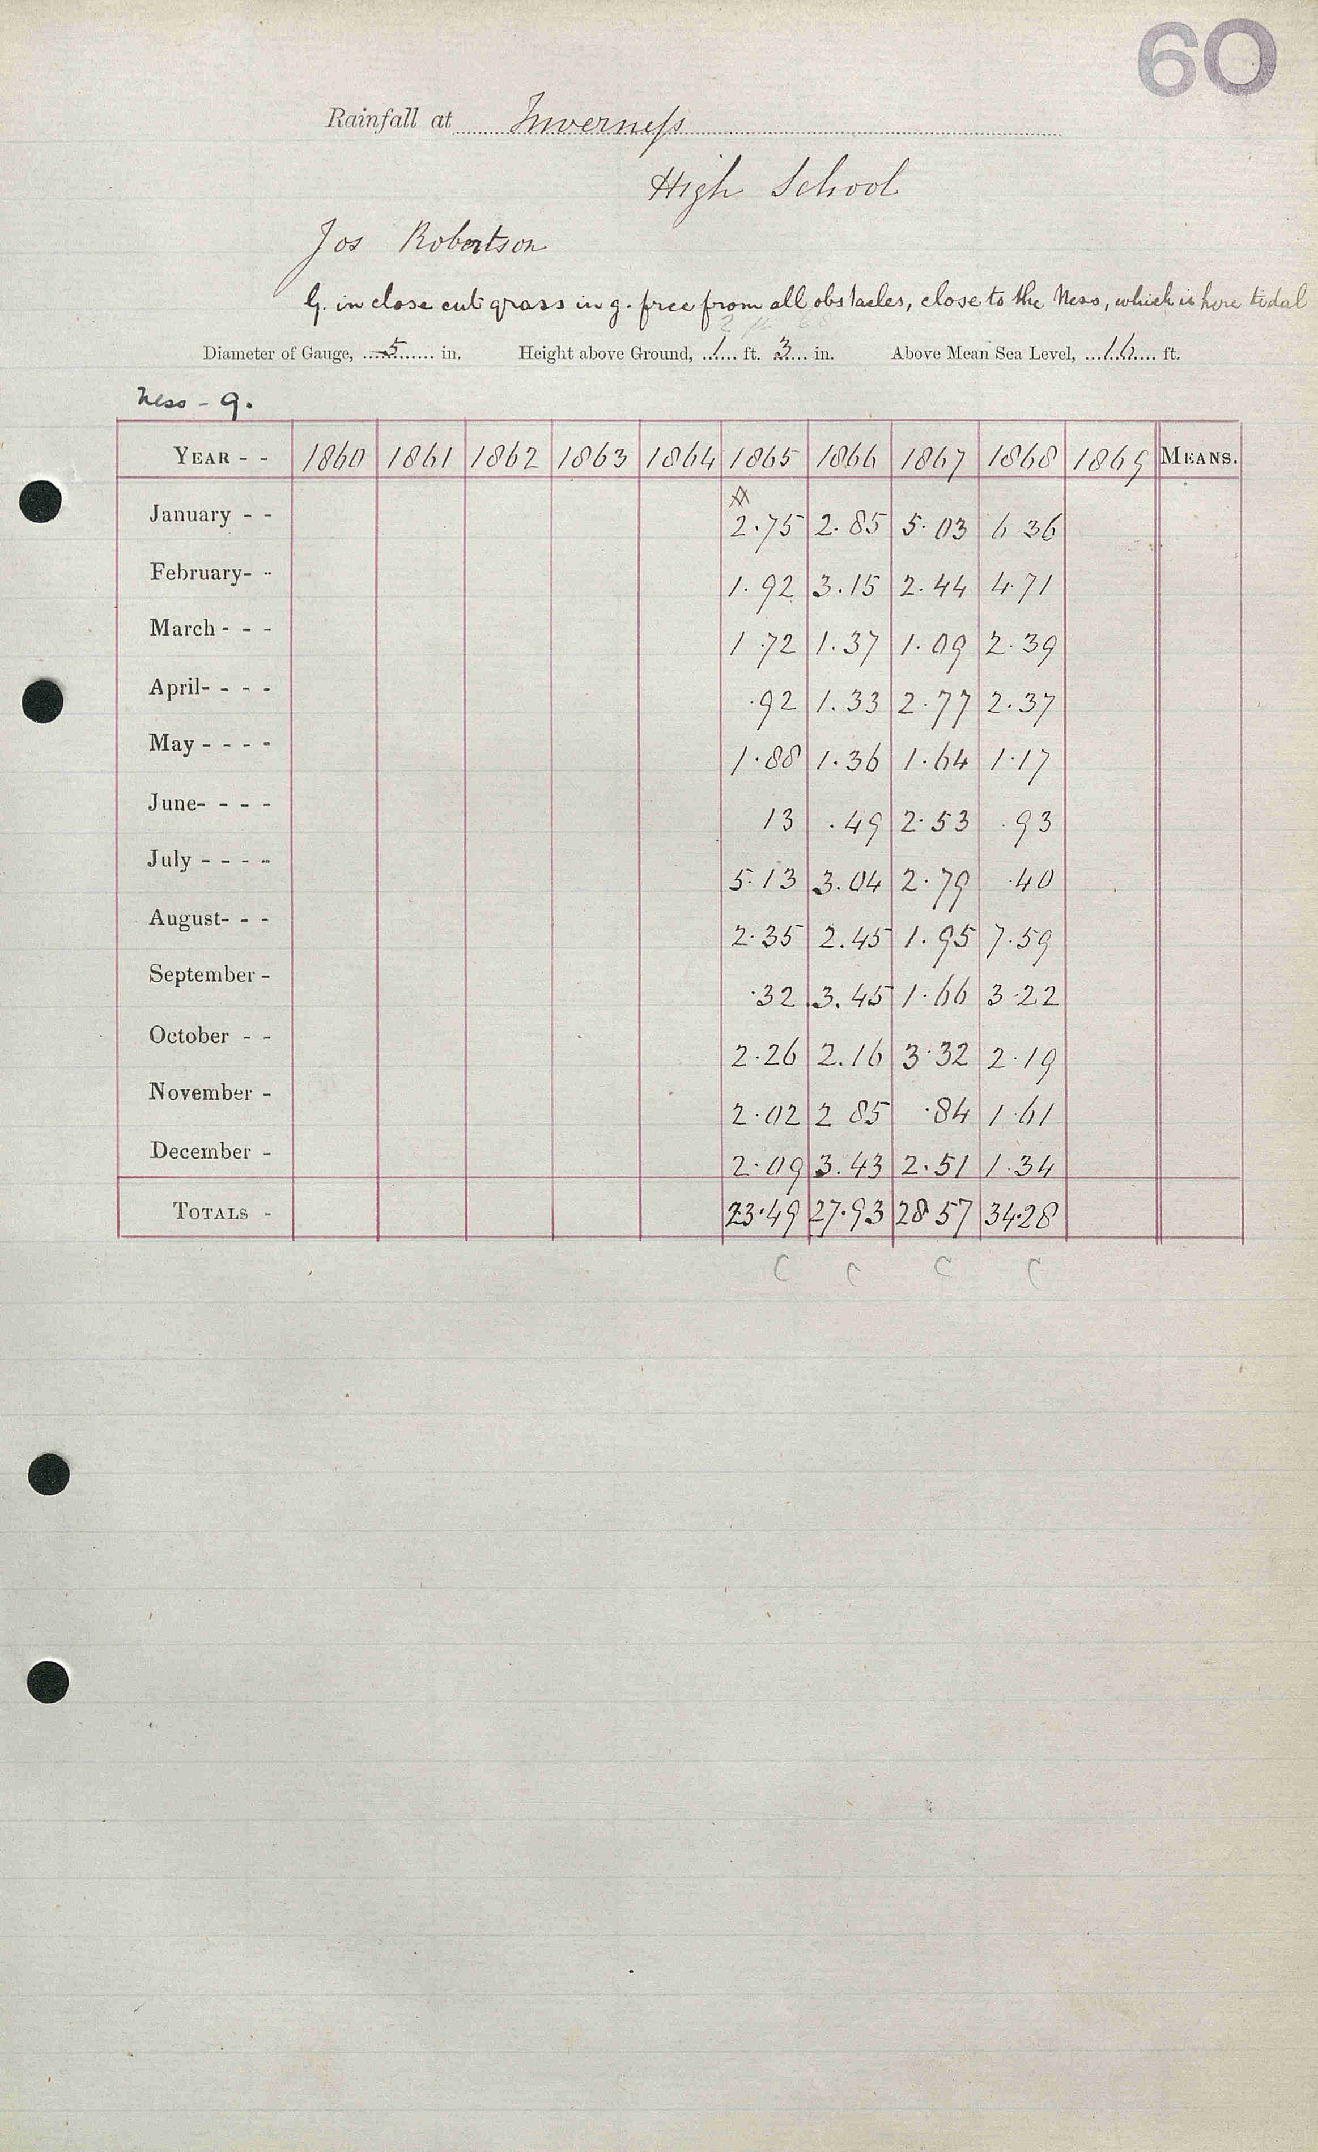 60
Rainfall at Inverness
High School
Jos Robertson
G. in close cut grass in g. free from all obstacles, close to the Ness, which is here tidal
Diameter of Gauge, 5 in. Height above Ground, 1 ft. 3 in. Above Mean Sea Level, 16 ft.
Ness - 9.
YEAR - - 1860 1861 1862 1863 1864 1865 1866 1867 1868 1869 MEANS.
January - - 2.75 2.85 5.03 6 36
February- - 1.92 3.15 2.44 4.71
March - - - 1.72 1.37 1.09 2.39
April- - - - .92 1.33 2.77 2.37
May - - - - 1.88 1.36 1.64 1.17
June- - - - 13 .49 2.53 .93
July - - - - 5.13 3.04 2.79 .40
August- - - 2.35 2.45 1.95 7.59
September - .32 3.45 1.66 3.22
October - - 2.26 2.16 3.32 2.19
November - 2.02 2 85 .84 1.61
December - 2.09 3.43 2.51 1.34
TOTALS - 23.49 27.93 28 57 34.28
C C C C